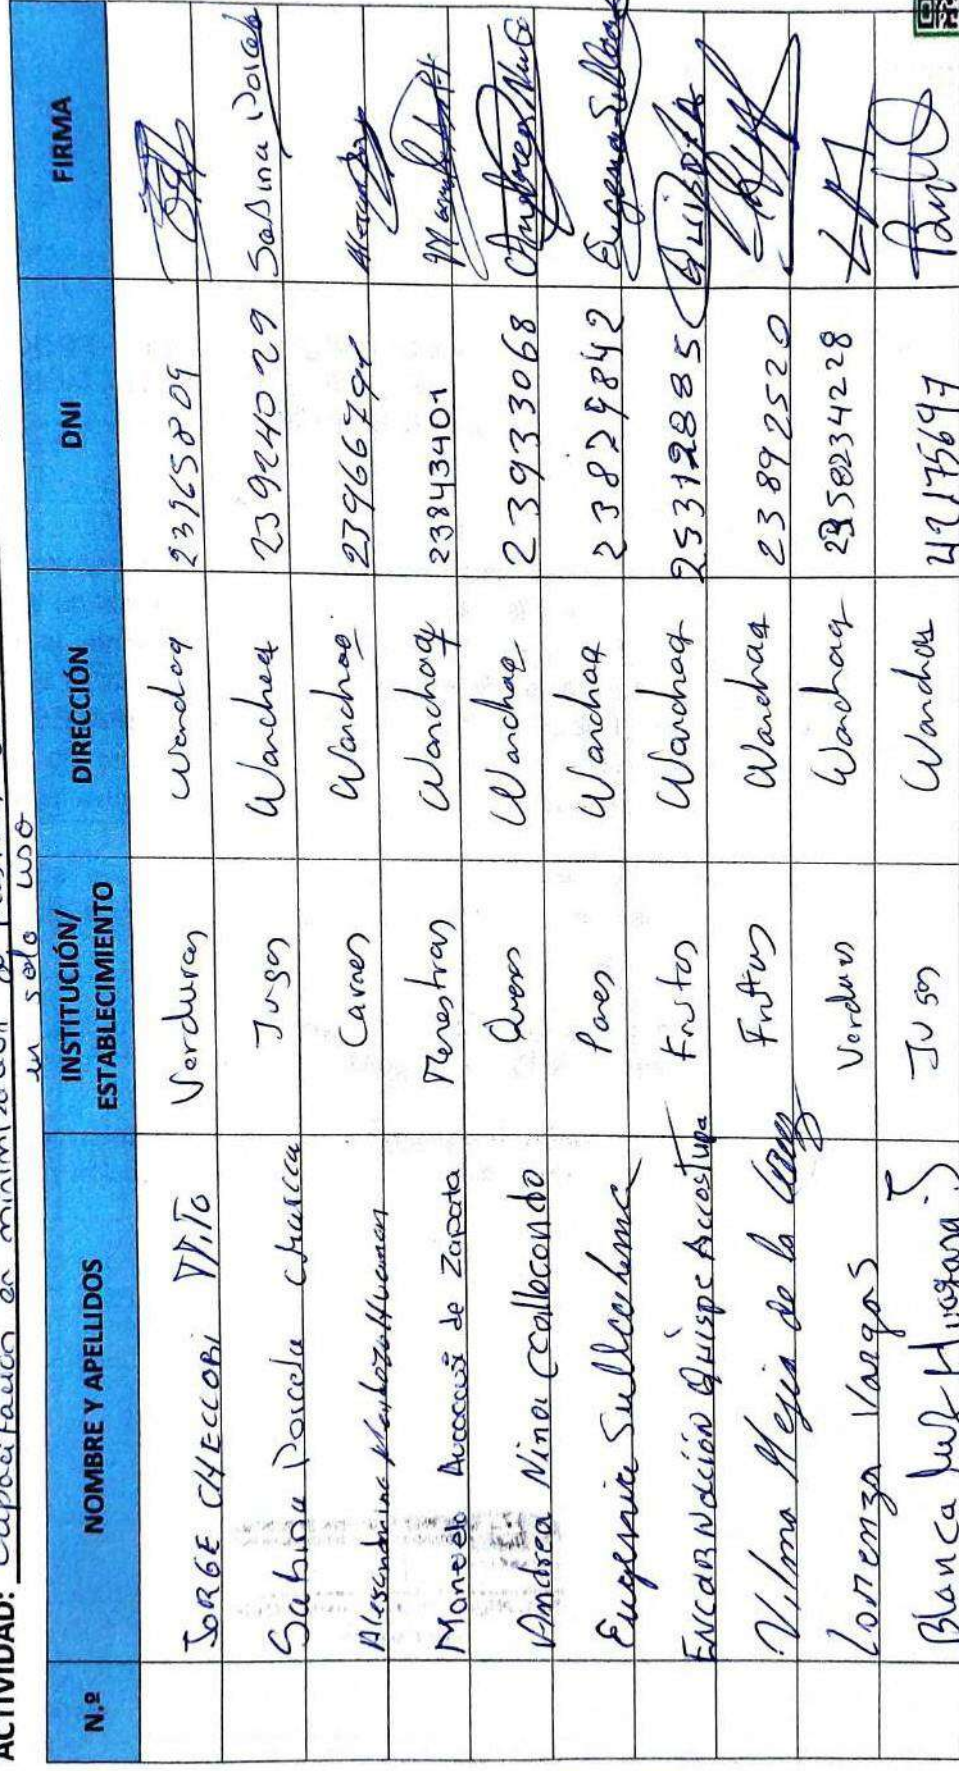 ACTIVIDAD: Capacitación en minimización de
en solo uso
N.º NOMBRE Y APELLIDOS INSTITUCIÓN/ ESTABLECIMIENTO DIRECCIÓN DNI FIRMA
JORGE CHECCORI VITO Verduras Wanchaq 23965809
Sabina Porcela Charcca Jugos Wanchaq 23924029 Sabina Porcela
Alejandrina Huaman Carnes Wanchaq
Manuela Auccacusi de Zapata Menestras Wanchaq 23843401
Andrea Nina Ccallocondo Quesos Wanchaq 23933068
Eugenia Sullcahuma Panes Wanchaq 23829842
ENCARNACIÓN Quispe Auccostupa Frutas Wanchaq 25312885 Quispe
Vilma Mejia de la Frutas Wanchaq 23892520
Lorenza Vargas Verduras Wanchaq
Blanca Luz Huaman S Jugos Wanchas 42175697